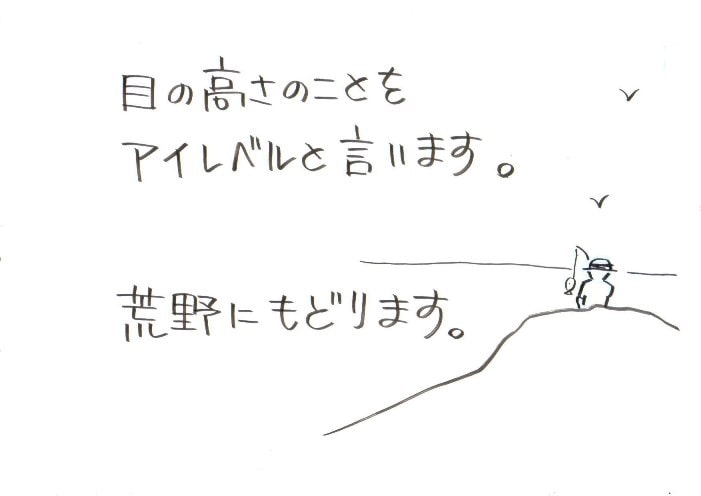 目の高さのことを
アイレベルと言います。
荒野にもどります。